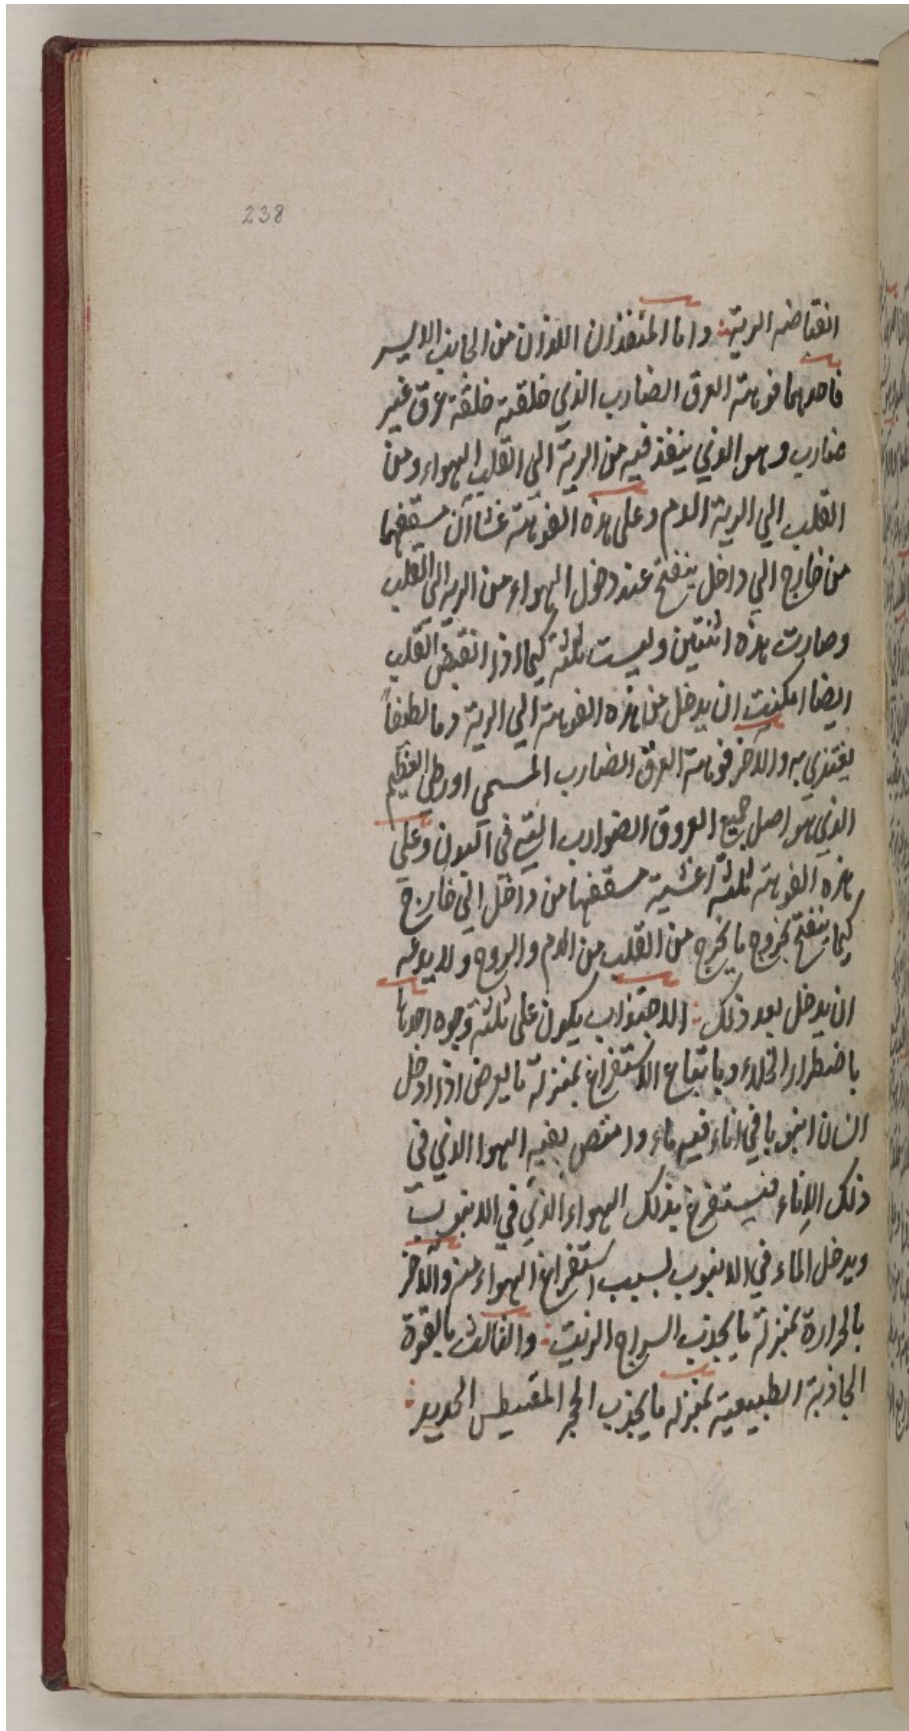 238
انقباضه الرية واما المنفذان اللذان من الجانب الايسر
فاحدهما فوهته العرق الضارب الذي خلقته خلقة عرق غير
ضارب وهو الذي ينفذ فيه من الرية الى القلب الهواء ومن
القلب الي الرية الدم وعلى هذه الفوهته غشاآن مسقفهما
من خارج الي داخل ينفتح عند دخول الهواء من الرية الى القلب
وصارت هذه اثنتين وليست ثلثه كيما اذا انقبض القلب
ايضا امكنت ان يدخل من هذه الفوهته الي الرية دما لطيفاً
يغتذي به والاخر فوهته العرق الضارب المسمي اورطى العظيم
الذي هو اصل جميع العروق الضوارب التي في الحيوان وعلي
هذه الفوهته ثلثة اغشية مسقفها من داخل الي خارج
كيما ينفتح بخروج ما يخرج من القلب من الدم والروح ولا يدعه
ان يدخل بعد ذلك الاجتذاب يكون على ثلثة وجوه احدها
باضطرار الخلاء وباتباع الاستفراغ بمنزلة ما يعرض اذا ادخل
انسان انبوبا في اناء فيه ماء وامتص بفيه الهوا الذي في
ذلك الاناء فيستفرغ بذلك الهواء الذي في الانبوب
ويدخل الماء في الانبوب بسبب استفراغ الهواء منه والاخر
بالحرارة بمنزلة ما يجذب السراج الزيت والثالث بالقوة
الجاذبة الطبيعية بمنزله ما يجذب الحجر المقنيطس الحديد